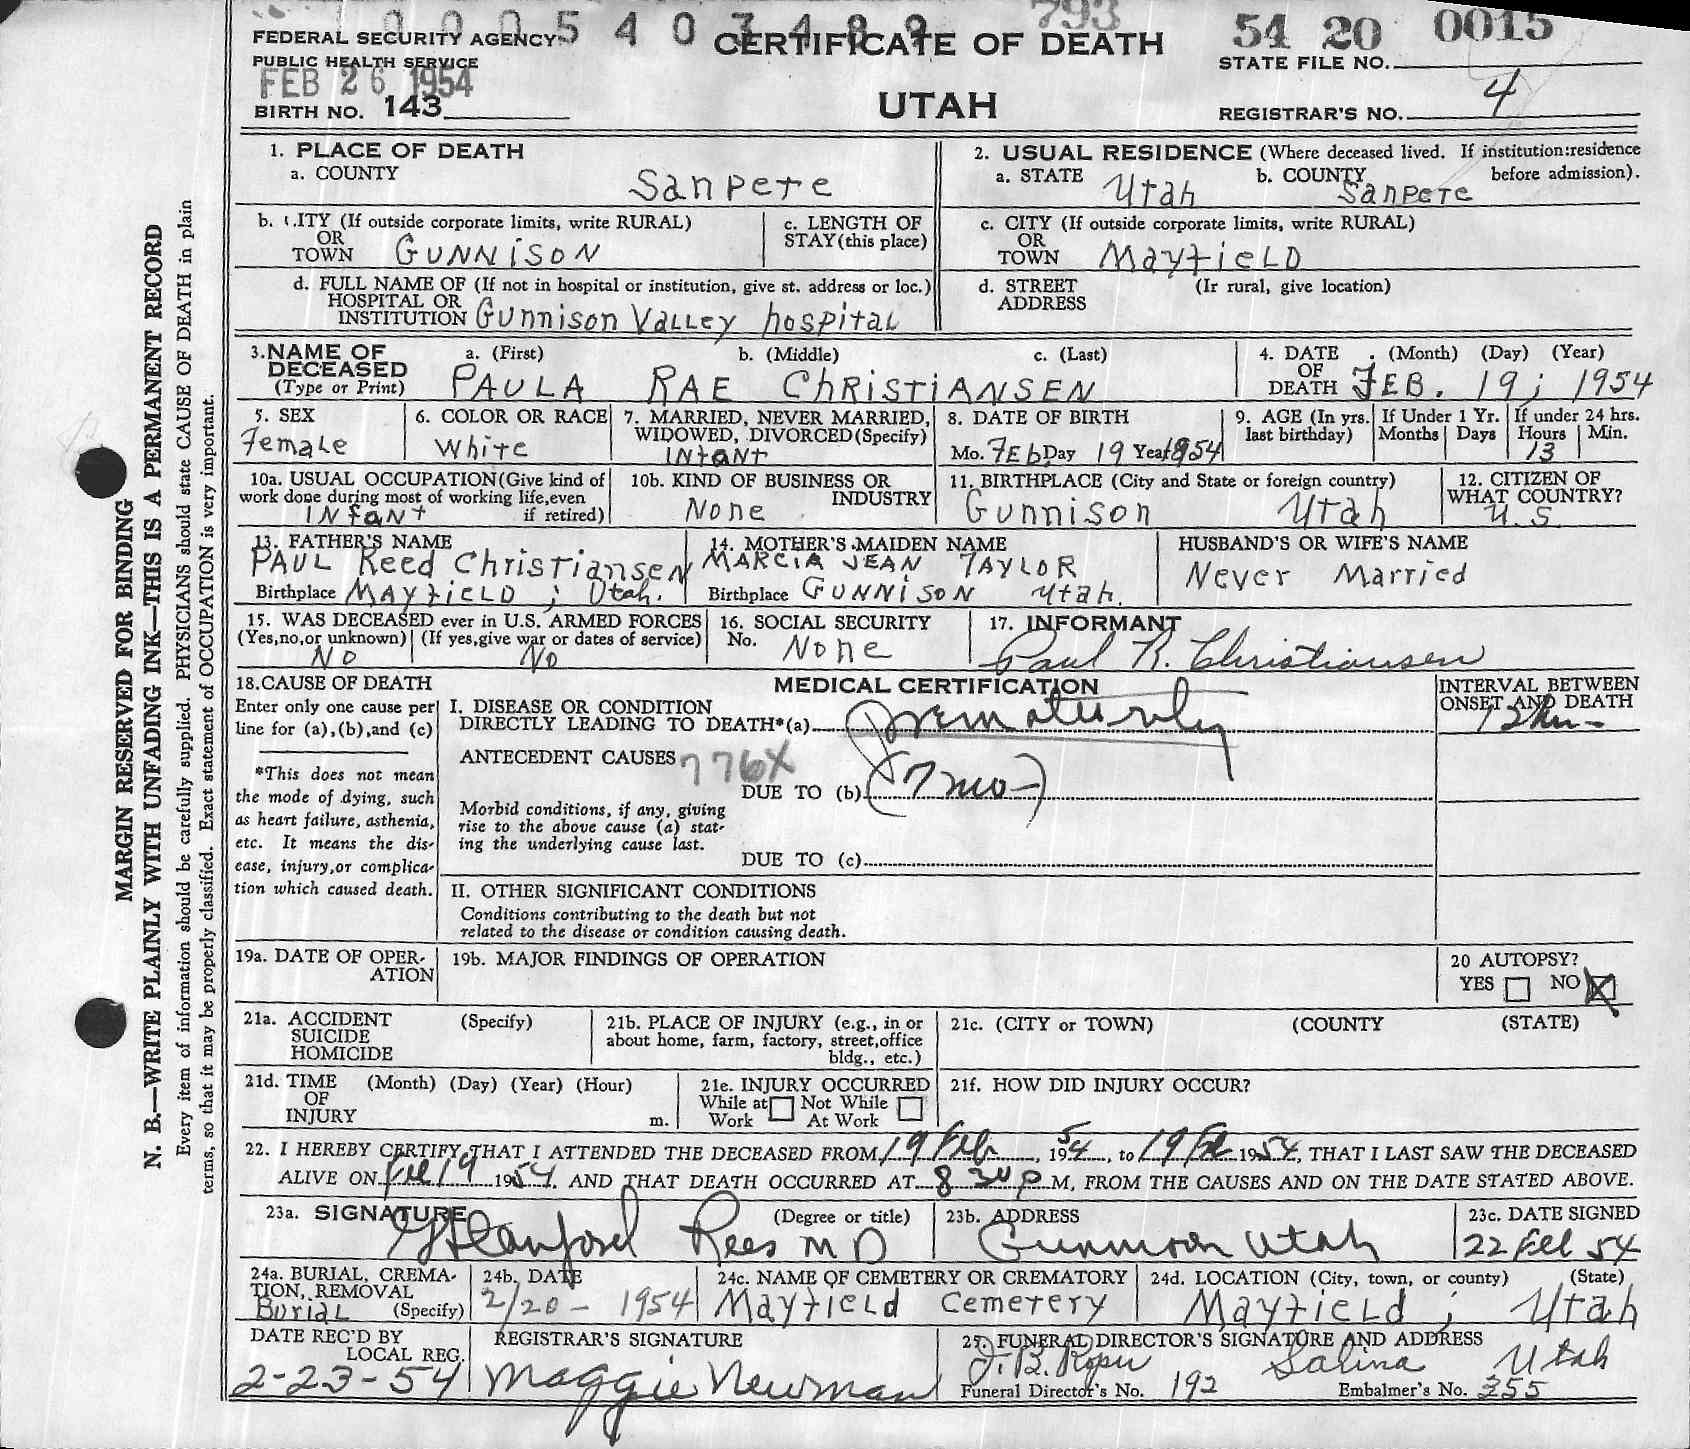 0 0 0 5 4 0 3 4 8 9 793 54 20 0015
FEDERAL SECURITY AGENCY CERTIFICATE OF DEATH
PUBLIC HEALTH SERVICE STATE FILE NO.
FEB 26 1954
BIRTH NO. 143 UTAH REGISTRAR'S NO. 4
1. PLACE OF DEATH
a. COUNTY Sanpete
2. USUAL RESIDENCE (Where deceased lived. If institution:residence before admission).
a. STATE Utah b. COUNTY Sanpete
b. CITY (If outside corporate limits, write RURAL)
OR
TOWN GUNNISON
c. LENGTH OF
STAY(this place)
c. CITY (If outside corporate limits, write RURAL)
OR
TOWN MayfieLD
d. FULL NAME OF (If not in hospital or institution, give st. address or loc.)
HOSPITAL OR
INSTITUTION Gunnison Valley hospital
d. STREET (Ir rural, give location)
ADDRESS
3. NAME OF a. (First) b. (Middle) c. (Last)
DECEASED
(Type or Print) PAULA RAE ChRISTiANSEN
4. DATE (Month) (Day) (Year)
OF
DEATH FEB. 19, 1954
5. SEX
Female
6. COLOR OR RACE
White
7. MARRIED, NEVER MARRIED,
WIDOWED, DIVORCED(Specify)
INfaNT
8. DATE OF BIRTH
Mo. FEb. Day 19 Year 1954
9. AGE (In yrs. last birthday)
If Under 1 Yr.
Months Days
If under 24 hrs.
Hours Min.
13
10a. USUAL OCCUPATION(Give kind of
work done during most of working life,even
if retired)
INfaNT
10b. KIND OF BUSINESS OR
INDUSTRY
None
11. BIRTHPLACE (City and State or foreign country)
Gunnison Utah
12. CITIZEN OF
WHAT COUNTRY?
U.S.
13. FATHER'S NAME
PAUL Reed Christiansen
Birthplace MAYfieLD, Utah.
14. MOTHER'S MAIDEN NAME
MARCIA JEAN TAYLOR
Birthplace GUNNISON Utah.
HUSBAND'S OR WIFE'S NAME
Never Married
15. WAS DECEASED ever in U.S. ARMED FORCES
(Yes,no,or unknown) (If yes,give war or dates of service)
No No
16. SOCIAL SECURITY
No. None
17. INFORMANT
Paul R. Christiansen
18. CAUSE OF DEATH
Enter only one cause per
line for (a),(b),and (c)
*This does not mean
the mode of dying, such
as heart failure, asthenia,
etc. It means the dis-
ease, injury,or complica-
tion which caused death.
MEDICAL CERTIFICATION
I. DISEASE OR CONDITION
DIRECTLY LEADING TO DEATH*(a) Prematurity
ANTECEDENT CAUSES 776X
DUE TO (b) (7 mo-)
Morbid conditions, if any, giving
rise to the above cause (a) stat-
ing the underlying cause last.
DUE TO (c)
INTERVAL BETWEEN
ONSET AND DEATH
II. OTHER SIGNIFICANT CONDITIONS
Conditions contributing to the death but not
related to the disease or condition causing death.
19a. DATE OF OPER-
ATION
19b. MAJOR FINDINGS OF OPERATION
20 AUTOPSY?
YES NO X
21a. ACCIDENT (Specify)
SUICIDE
HOMICIDE
21b. PLACE OF INJURY (e.g., in or
about home, farm, factory, street,office
bldg., etc.)
21c. (CITY or TOWN) (COUNTY (STATE)
21d. TIME (Month) (Day) (Year) (Hour)
OF
INJURY m.
21e. INJURY OCCURRED
While at Not While
Work At Work
21f. HOW DID INJURY OCCUR?
22. I HEREBY CERTIFY THAT I ATTENDED THE DECEASED FROM 19 Feb, 1954, to 19 Feb 1954, THAT I LAST SAW THE DECEASED
ALIVE ON Feb 19 1954, AND THAT DEATH OCCURRED AT 8 30 P M, FROM THE CAUSES AND ON THE DATE STATED ABOVE.
23a. SIGNATURE (Degree or title)
G Stanford Rees M D
23b. ADDRESS
Gunnison Utah
23c. DATE SIGNED
22 Feb 54
24a. BURIAL, CREMA-
TION, REMOVAL
(Specify)
Burial
24b. DATE
2/20 - 1954
24c. NAME OF CEMETERY OR CREMATORY
Mayfield Cemetery
24d. LOCATION (City, town, or county) (State)
Mayfield, Utah
DATE REC'D BY
LOCAL REG.
2-23-54
REGISTRAR'S SIGNATURE
Maggie Newman
25. FUNERAL DIRECTOR'S SIGNATURE AND ADDRESS
J. B. Roper Salina Utah
Funeral Director's No. 192 Embalmer's No. 355
MARGIN RESERVED FOR BINDING
N. B.—WRITE PLAINLY WITH UNFADING INK—THIS IS A PERMANENT RECORD
Every item of information should be carefully supplied. PHYSICIANS should state CAUSE OF DEATH in plain
terms, so that it may be properly classified. Exact statement of OCCUPATION is very important.